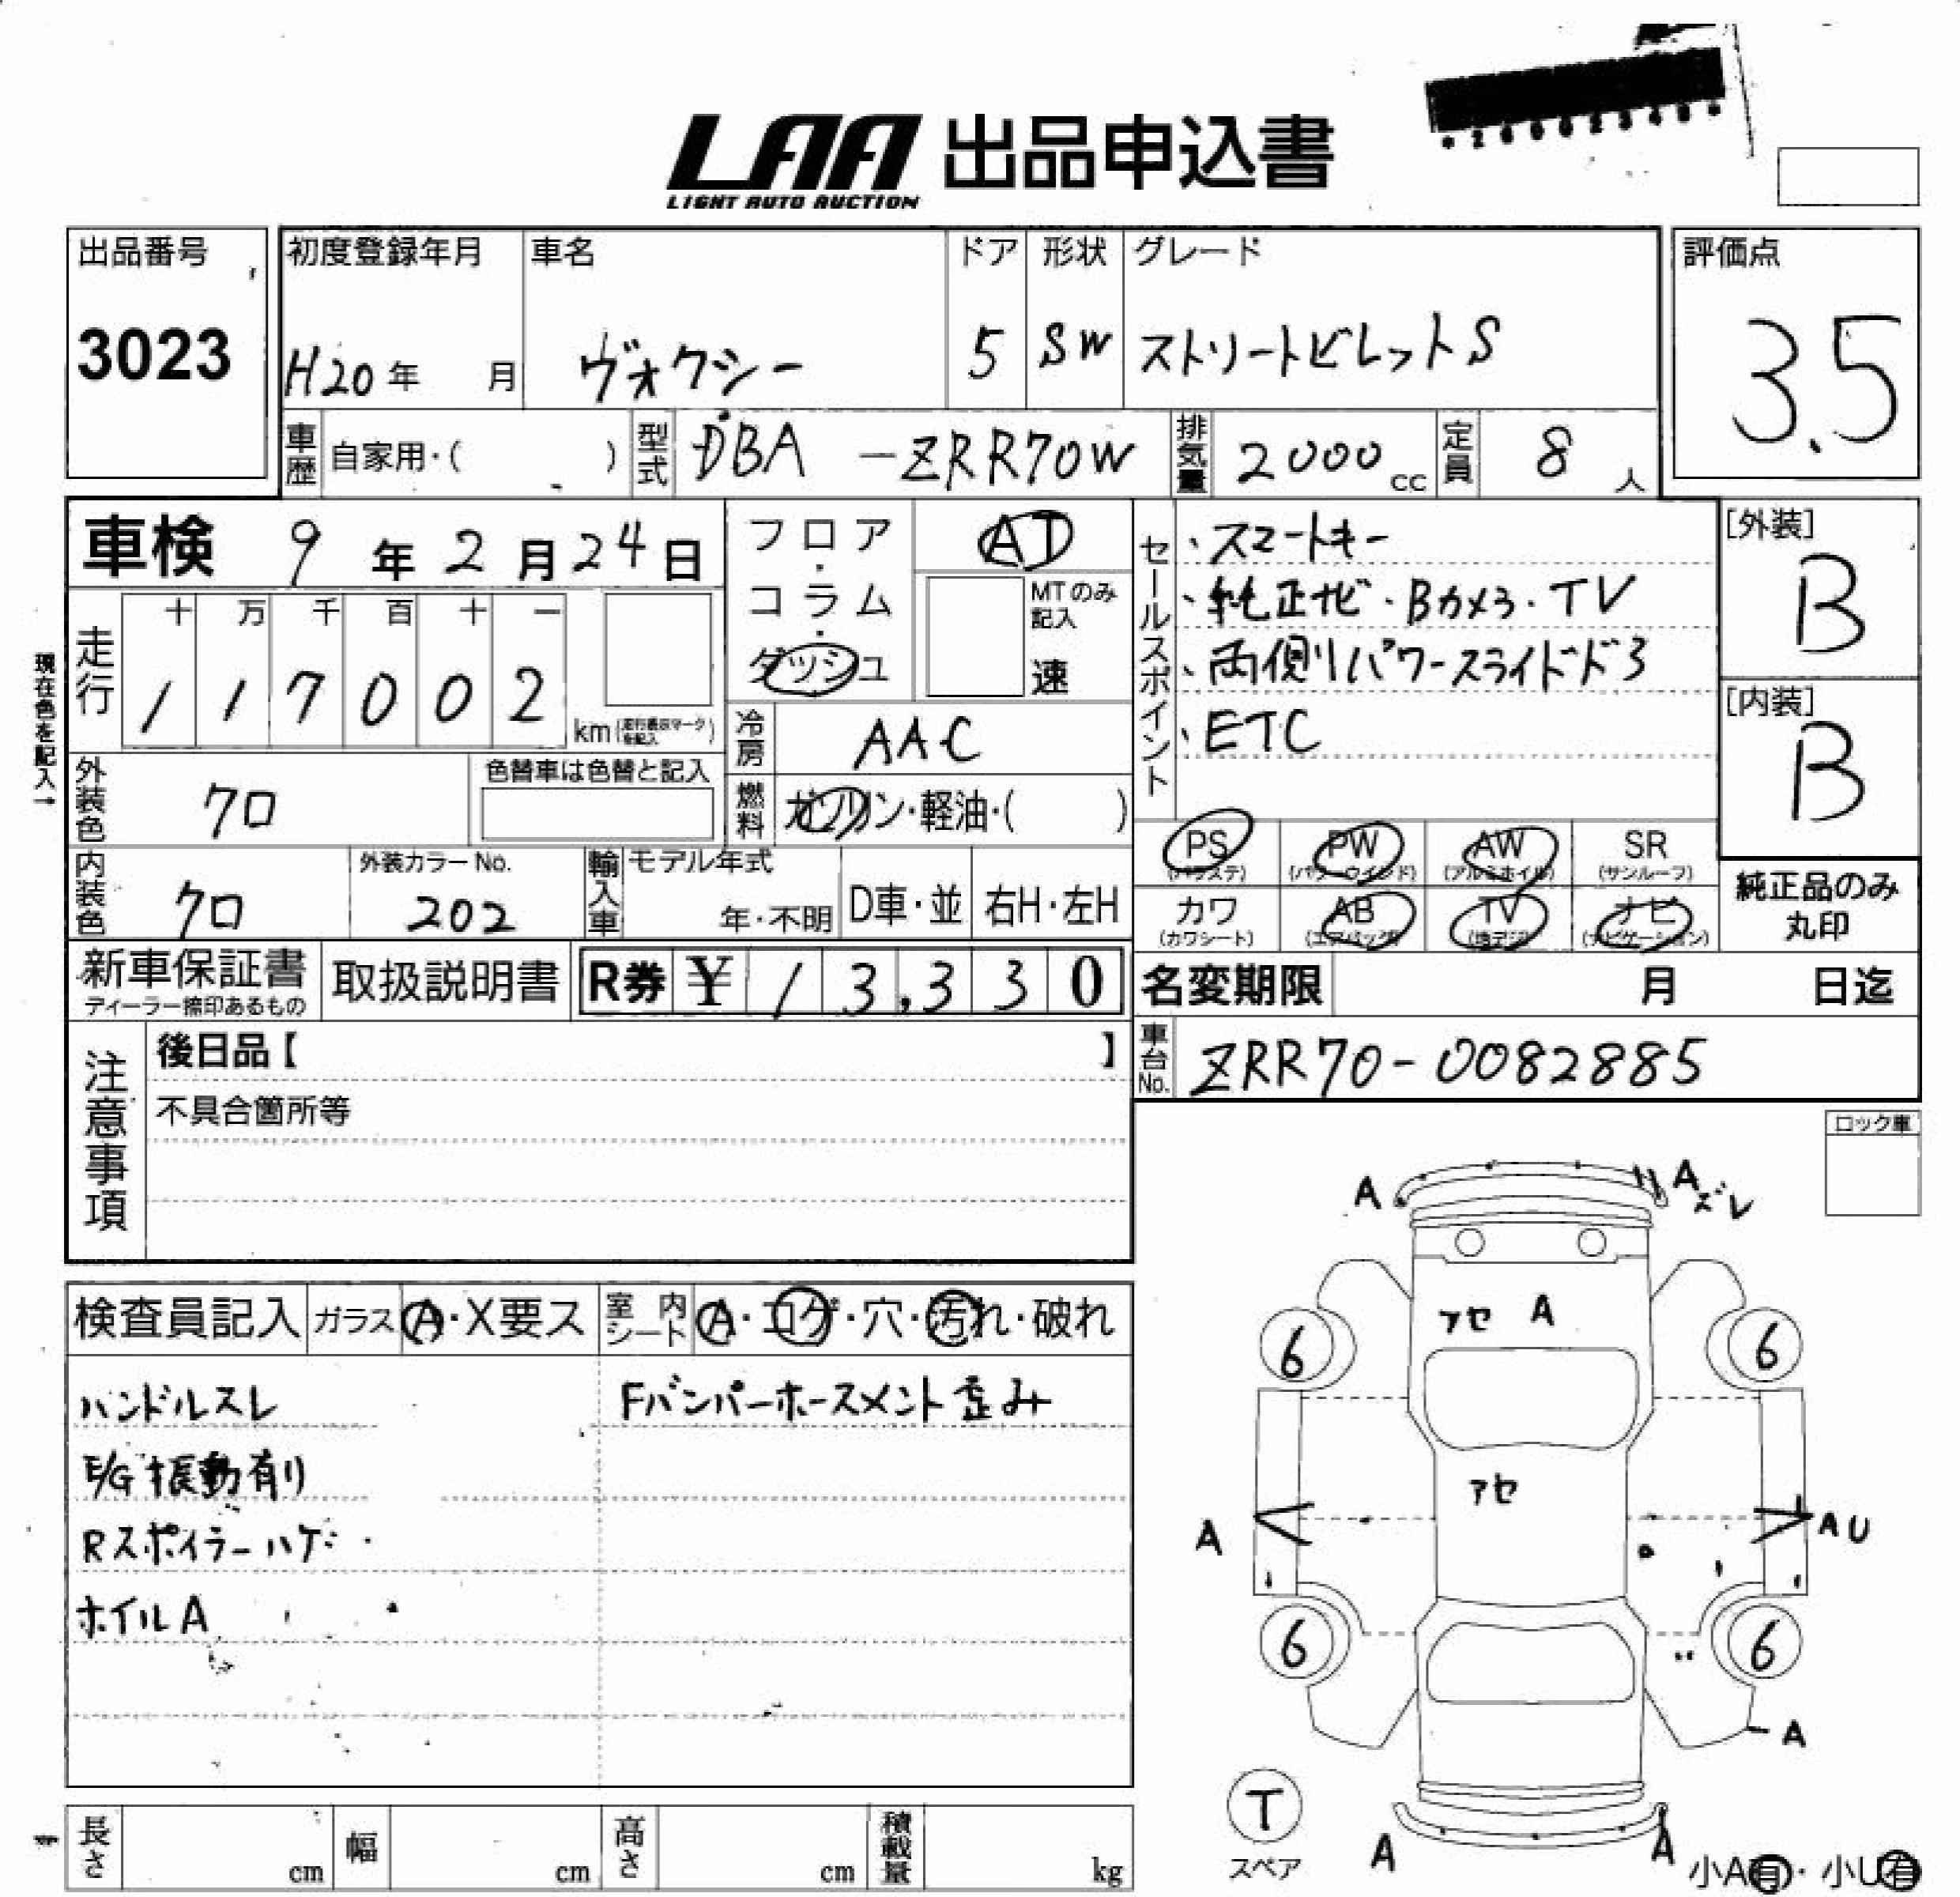 LAA 出品申込書
LIGHT AUTO AUCTION
出品番号 初度登録年月 車名 ドア 形状 グレード 評価点
3023 H20年 月 ヴォクシー 5 SW ストリートビレットS 3.5
車歴 自家用・( ) 型式 DBA -ZRR70W 排気量 2000cc 定員 8人
車検 9年2月24日 フロア・コラム・ダッシュ AT
MTのみ記入 速
セールスポイント
・スマートキー
・純正ナビ・Bカメラ・TV
・両側パワースライドドア
・ETC
[外装]
B
[内装]
B
純正品のみ丸印
現在色を記入→
走行 十 万 千 百 十 一
1 1 7 0 0 2 km (走行表示マークを記入)
冷房 AAC
外装色 クロ 色替車は色替と記入 燃料 ガソリン・軽油・( )
内装色 クロ 外装カラーNo. 202 輸入車 モデル年式 年・不明 D車・並 右H・左H
PS (パワステ) PW (パワーウインド) AW (アルミホイル) SR (サンルーフ)
カワ (カワシート) AB (エアバッグ) TV (地デジ) ナビ (ナビゲーション)
新車保証書 ディーラー捺印あるもの 取扱説明書 R券 ¥ 1 3,3 3 0 名変期限 月 日迄
車台No. ZRR70-0082885
注意事項
後日品【 】
不具合箇所等
ロック車
検査員記入 ガラス A・X要ス 室内シート A・コゲ・穴・汚れ・破れ
ハンドルスレ Fバンパーホースメント歪み
E/G振動有り
Rスポイラーハゲ
ホイルA
A A ズレ
アセ A
6 6
アセ
A AU
6 6
A
T
スペア
A A
小A有・小U有
長さ cm 幅 cm 高さ cm 積載量 kg